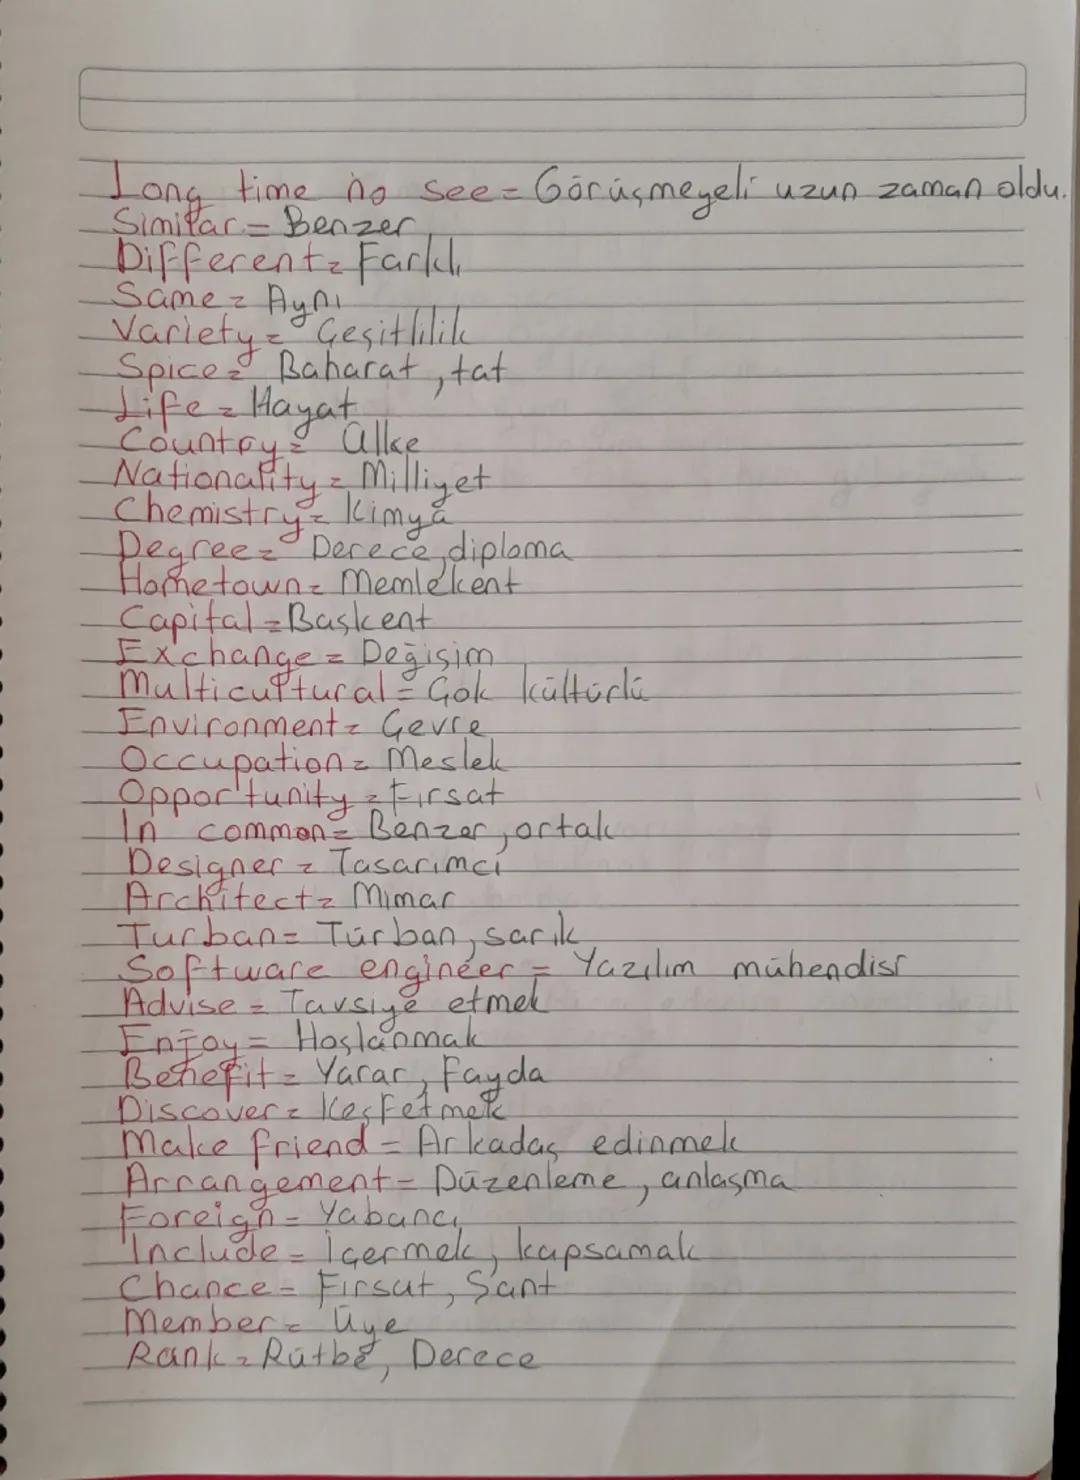 Long time no see = Görüşmeyeli uzun zaman oldu.
Similar = Benzer
Different = Farklı
Same = Aynı
Variety = Çeşitlilik
Spice = Baharat, tat
Life = Hayat
Country = Ülke
Nationality = Milliyet
Chemistry = Kimya
Degree = Derece, diploma
Hometown = Memlekent
Capital = Başkent
Exchange = Değişim
Multicultural = Çok kültürlü
Environment = Çevre
Occupation = Meslek
Opportunity = Fırsat
In common = Benzer, ortak
Designer = Tasarımcı
Architect = Mimar
Turban = Türban, sarık
Software engineer = Yazılım mühendisi
Advise = Tavsiye etmek
Enjoy = Hoşlanmak
Benefit = Yarar, Fayda
Discover = Keşfetmek
Make friend = Arkadaş edinmek
Arrangement = Düzenleme, anlaşma
Foreign = Yabancı
Include = İçermek, kapsamak
Chance = Fırsat, Şant
Member = Üye
Rank = Rütbe, Derece